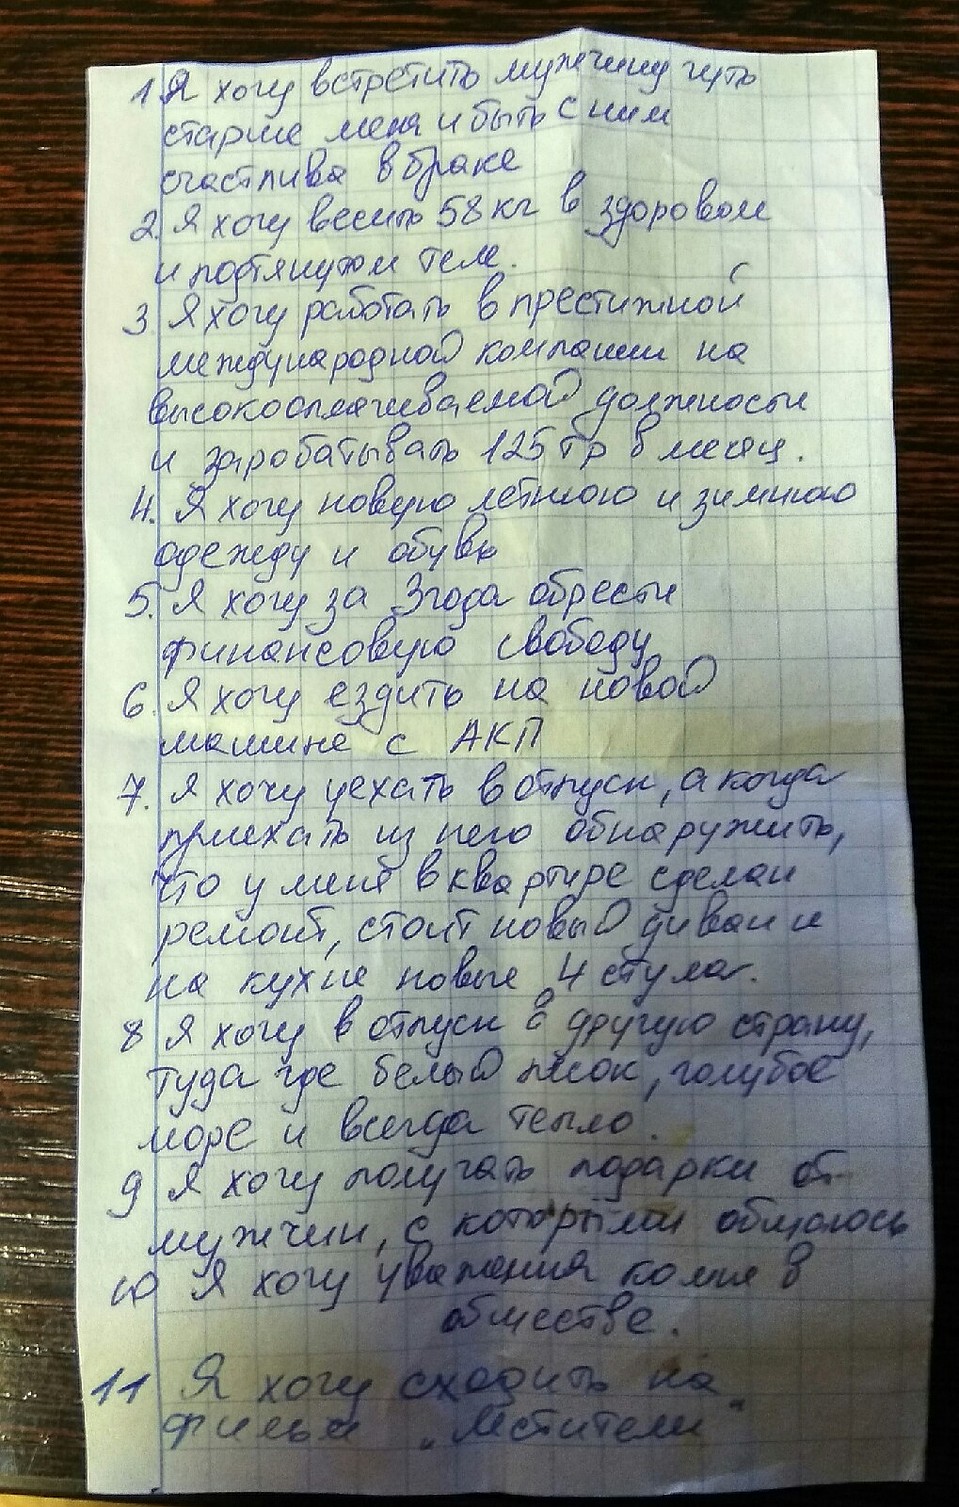 1 Я хочу встретить мужчину чуть
старше меня и быть с ним
счастлива в браке
2. Я хочу весить 58 кг в здоровом
и подтянутом теле.
3 Я хочу работать в престижной
международной компании на
высокооплачиваемой должности
и заробатывать 125 тр в месяц.
4. Я хочу новую летнюю и зимнюю
одежду и обувь
5. Я хочу за 3 года обрести
финансовую свободу
6. Я хочу ездить на новой
машине с АКП
7. Я хочу уехать в отпуск, а когда
приехать из него обнаружить,
что у меня в квартире сделан
ремонт, стоит новый диван и
на кухне новые 4 стула.
8 Я хочу в отпуск в другую страну,
туда где белый песок, голубое
море и всегда тепло.
9 Я хочу получать подарки от
мужчин, с которыми общаюсь
10 Я хочу уважения ко мне в
обществе.
11 Я хочу сходить на
фильм "Мстители"